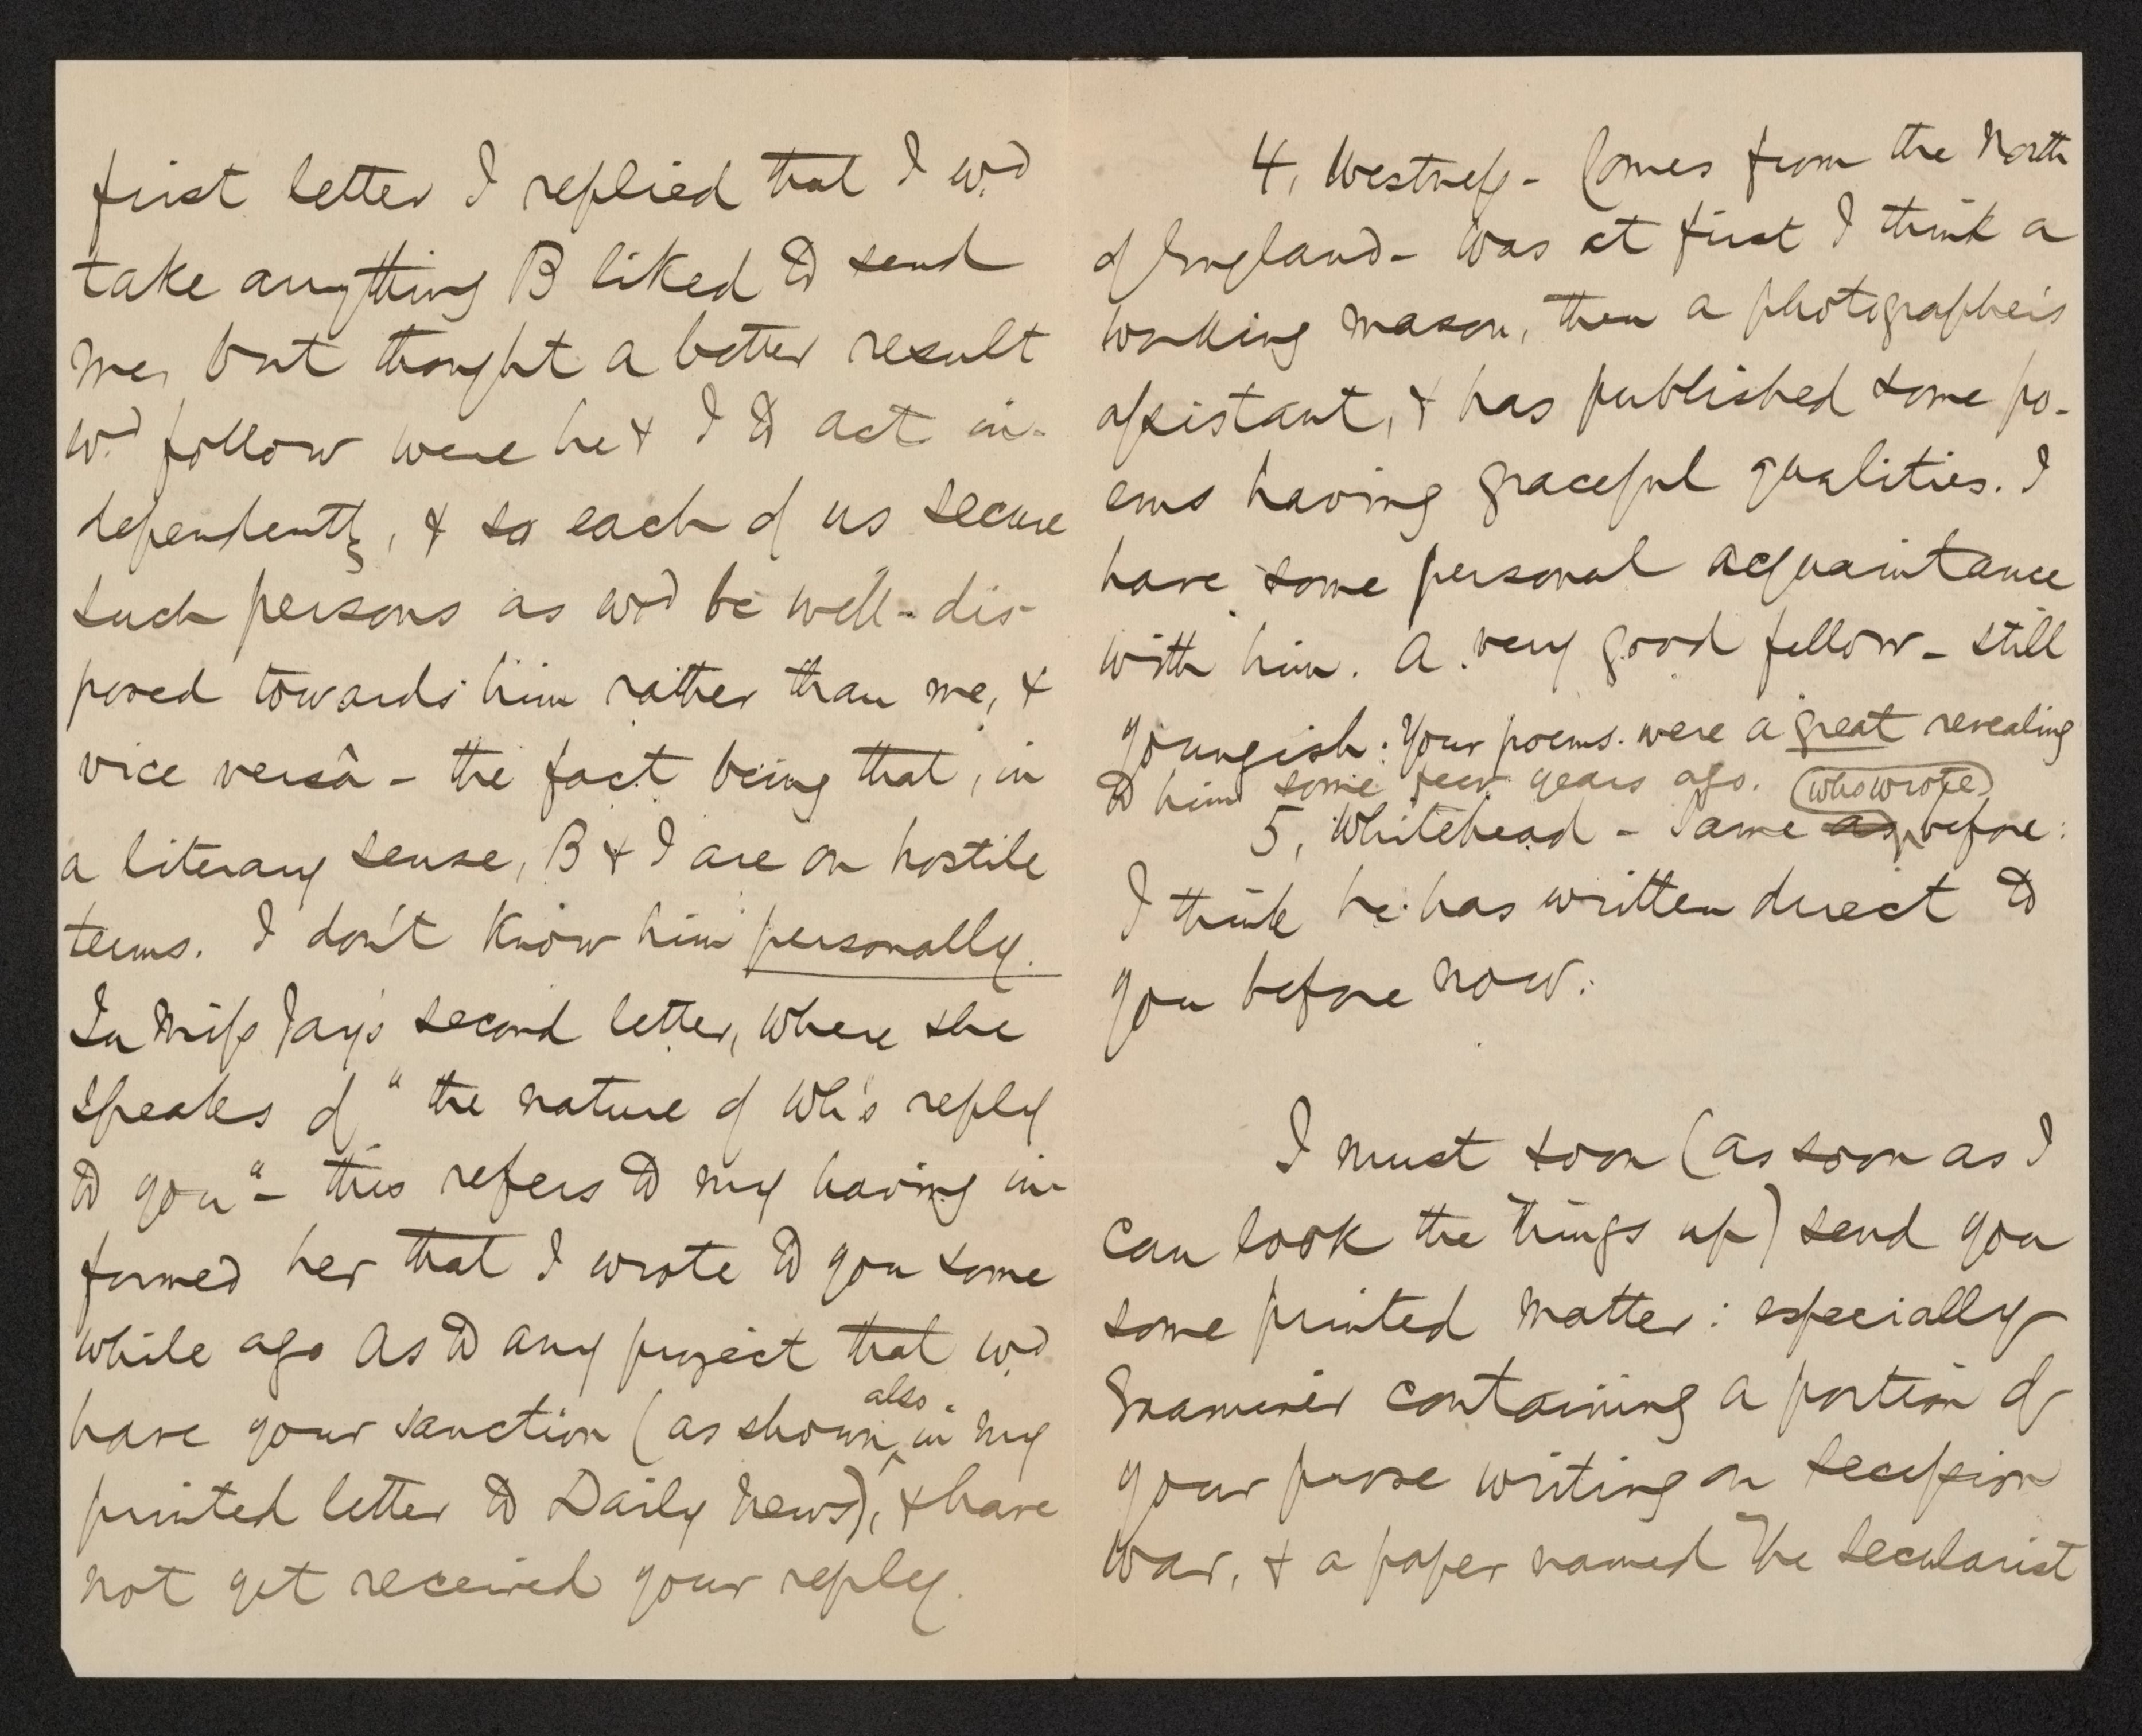 first letter I replied that I wd.
take anything B liked to send
me, but thought a better result
wd. follow were he & I to act in-
dependently, & so each of us secure
such persons as wd be well-dis-
posed towards him rather than me, &
vice versâ - the fact being that, in
a literary sense, B & I are on hostile
terms. I don't know him personally.
In Miss Jay's second letter, where she
speaks of "the nature of Wh's reply
to you" - this refers to my having in-
formed her that I wrote to you some
while ago as to any project that wd.
also
have your sanction (as shown ^ in my
printed letter to Daily News), & have
not yet received your reply.
4, Westness - Comes from the North
of England - was at first I think a
working mason, then a photographer's
assistant, & has published some po-
ems having graceful qualities. I
have some personal acquaintance
with him. A very good fellow - still
youngish: Your poems were a great revealing
to him some few years ago.
who wrote
5, Whitehead - Same as ^ before:
I think he has written direct to
you before now.
I must soon (as soon as I
can look the things up) send you
some printed matter: especially
Examiner containing a portion of
your prose writing on secession
war, & a paper named The Secularist